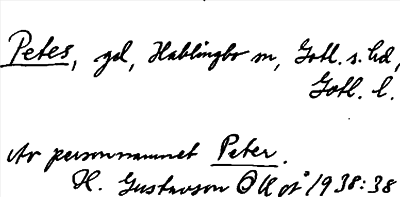 Petes, gd, Hablingbo sn, Gotl. s. hd,
Gotl. l.
Av personnamnet Peter.
H. Gustavson 1938:38